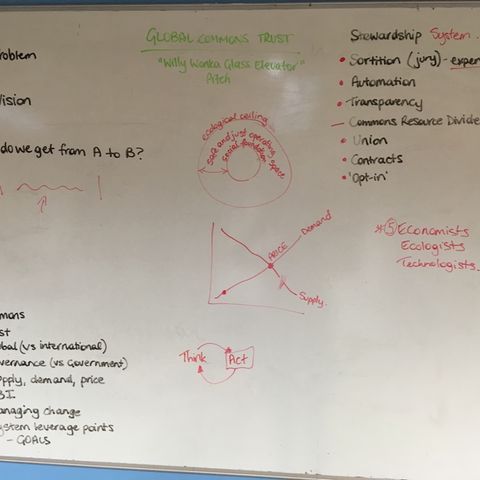 GLOBAL COMMONS TRUST
"Willy Wonka Glass Elevator"
Pitch
roblem
ision
do we get from A to B?
ecological ceiling
safe and just operating space
social foundation
Demand
PRICE
Supply.
Think
Act
mons
st
bal (vs international)
vernance (vs Government)
pply, demand, price
B.I.
anaging change
ystem leverage points
- GOALS
Stewardship System.
Sortition (jury) - exper
Automation
Transparency
Commons Resource Divide
Union
Contracts
'Opt-in'
*⑤ Economists
Ecologists
Technologists.